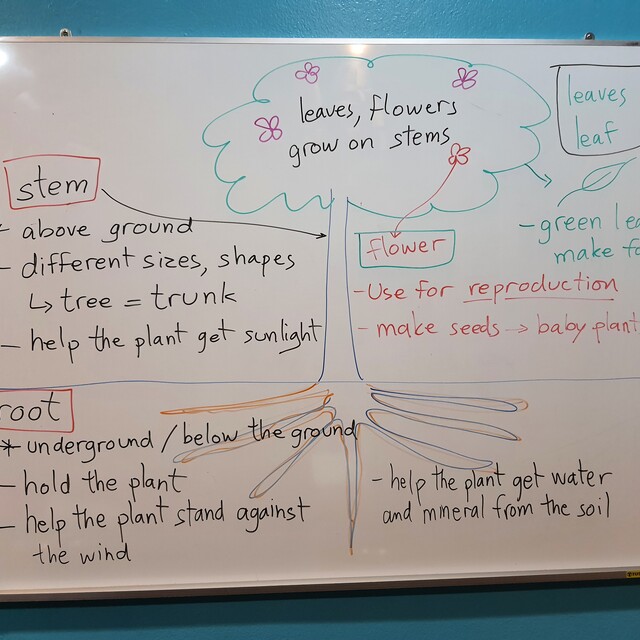 leaves, flowers
grow on stems
leaves
leaf
stem
- above ground
- different sizes, shapes
↳ tree = trunk
- help the plant get sunlight
flower
- Use for reproduction
- make seeds → baby plant
- green
make
root
* underground / below the ground
- hold the plant
- help the plant stand against
the wind
- help the plant get water
and mineral from the soil